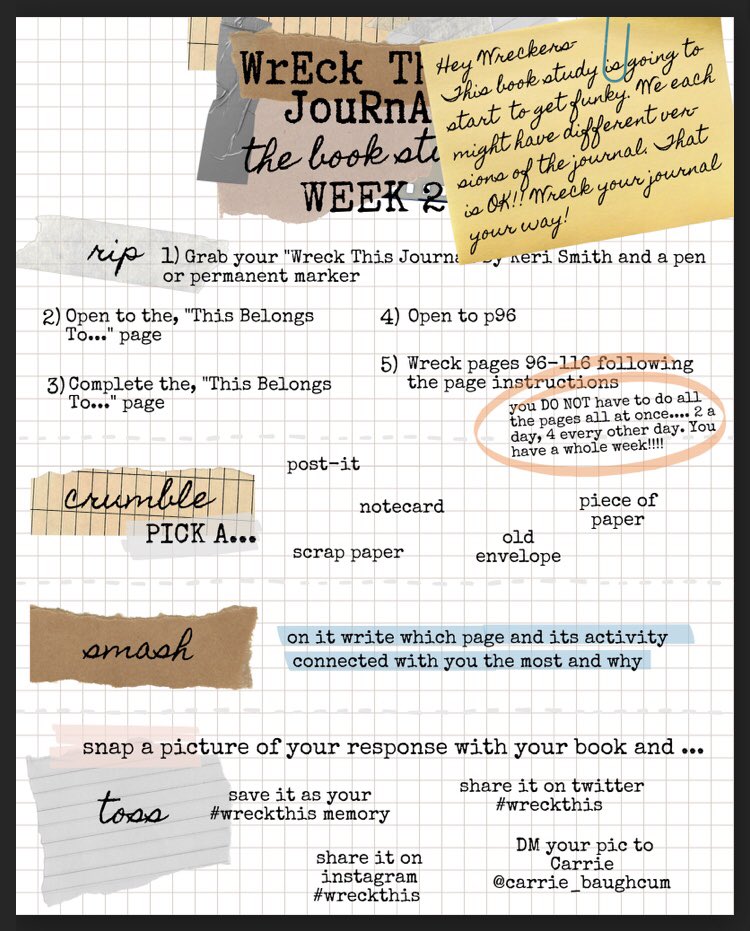 WrEck Th
JouRnA
the book stu
WEEK 2
Hey Wreckers-
This book study is going to
start to get funky. We each
might have different ver-
sions of the journal. That
is OK!! Wreck your journal
your way!
rip
1) Grab your "Wreck This Journa by Keri Smith and a pen
or permanent marker
2) Open to the, "This Belongs
To..." page
3) Complete the, "This Belongs
To..." page
4) Open to p96
5) Wreck pages 96-116 following
the page instructions
you DO NOT have to do all
the pages all at once.... 2 a
day, 4 every other day. You
have a whole week!!!!
crumble
PICK A...
post-it
notecard
piece of
paper
scrap paper
old
envelope
smash
on it write which page and its activity
connected with you the most and why
snap a picture of your response with your book and ...
toss
save it as your
#wreckthis memory
share it on twitter
#wreckthis
share it on
instagram
#wreckthis
DM your pic to
Carrie
@carrie_baughcum